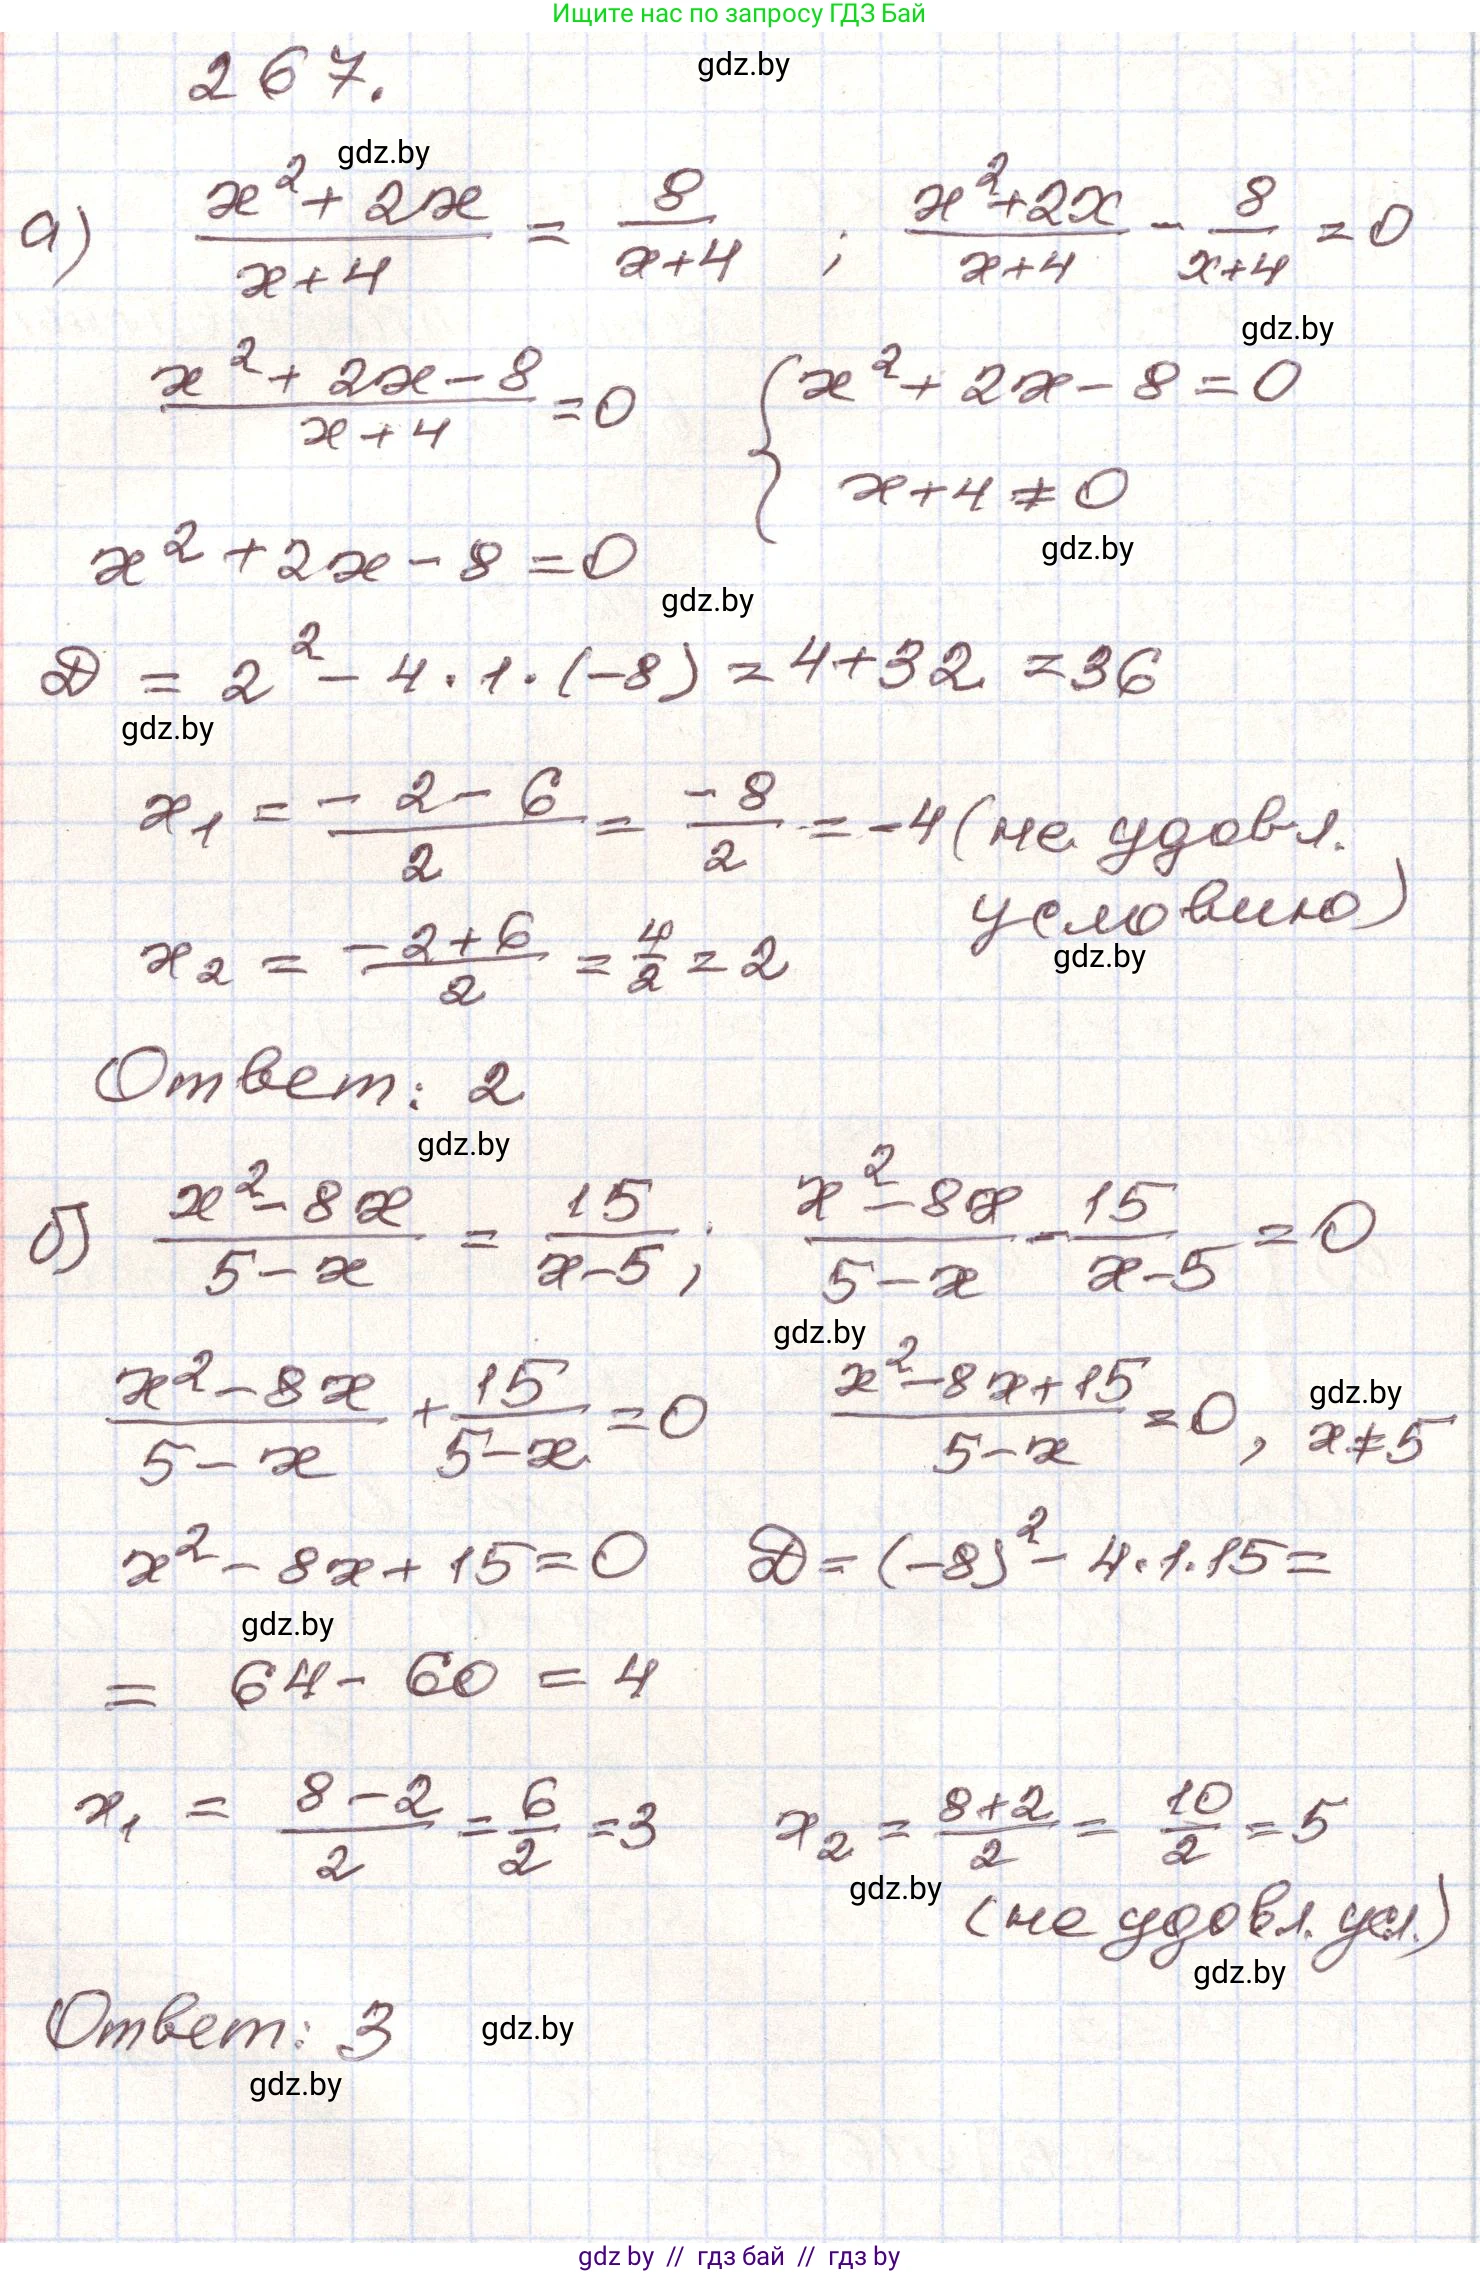 Ищите нас по запросу ГДЗ Бай
267.
gdz.by
gdz.by
а) (x²+2x)/(x+4) = 8/(x+4) ; (x²+2x)/(x+4) - 8/(x+4) = 0
gdz.by
(x²+2x-8)/(x+4) = 0 { x²+2x-8=0
x+4≠0
gdz.by
x²+2x-8=0
gdz.by
D = 2² - 4·1·(-8) = 4+32 = 36
gdz.by
x₁ = (-2-6)/2 = -8/2 = -4 (не удовл.
условию)
gdz.by
x₂ = (-2+6)/2 = 4/2 = 2
Ответ: 2
gdz.by
б) (x²-8x)/(5-x) = 15/(x-5); (x²-8x)/(5-x) - 15/(x-5) = 0
gdz.by
(x²-8x)/(5-x) + 15/(5-x) = 0 (x²-8x+15)/(5-x) = 0, x≠5
gdz.by
x²-8x+15=0 D=(-8)²-4·1·15=
gdz.by
= 64-60 = 4
x₁ = (8-2)/2 = 6/2 = 3 x₂ = (8+2)/2 = 10/2 = 5
gdz.by
(не удовл. усл.)
gdz.by
Ответ: 3
gdz.by
gdz.by
gdz by // гдз бай // гдз by